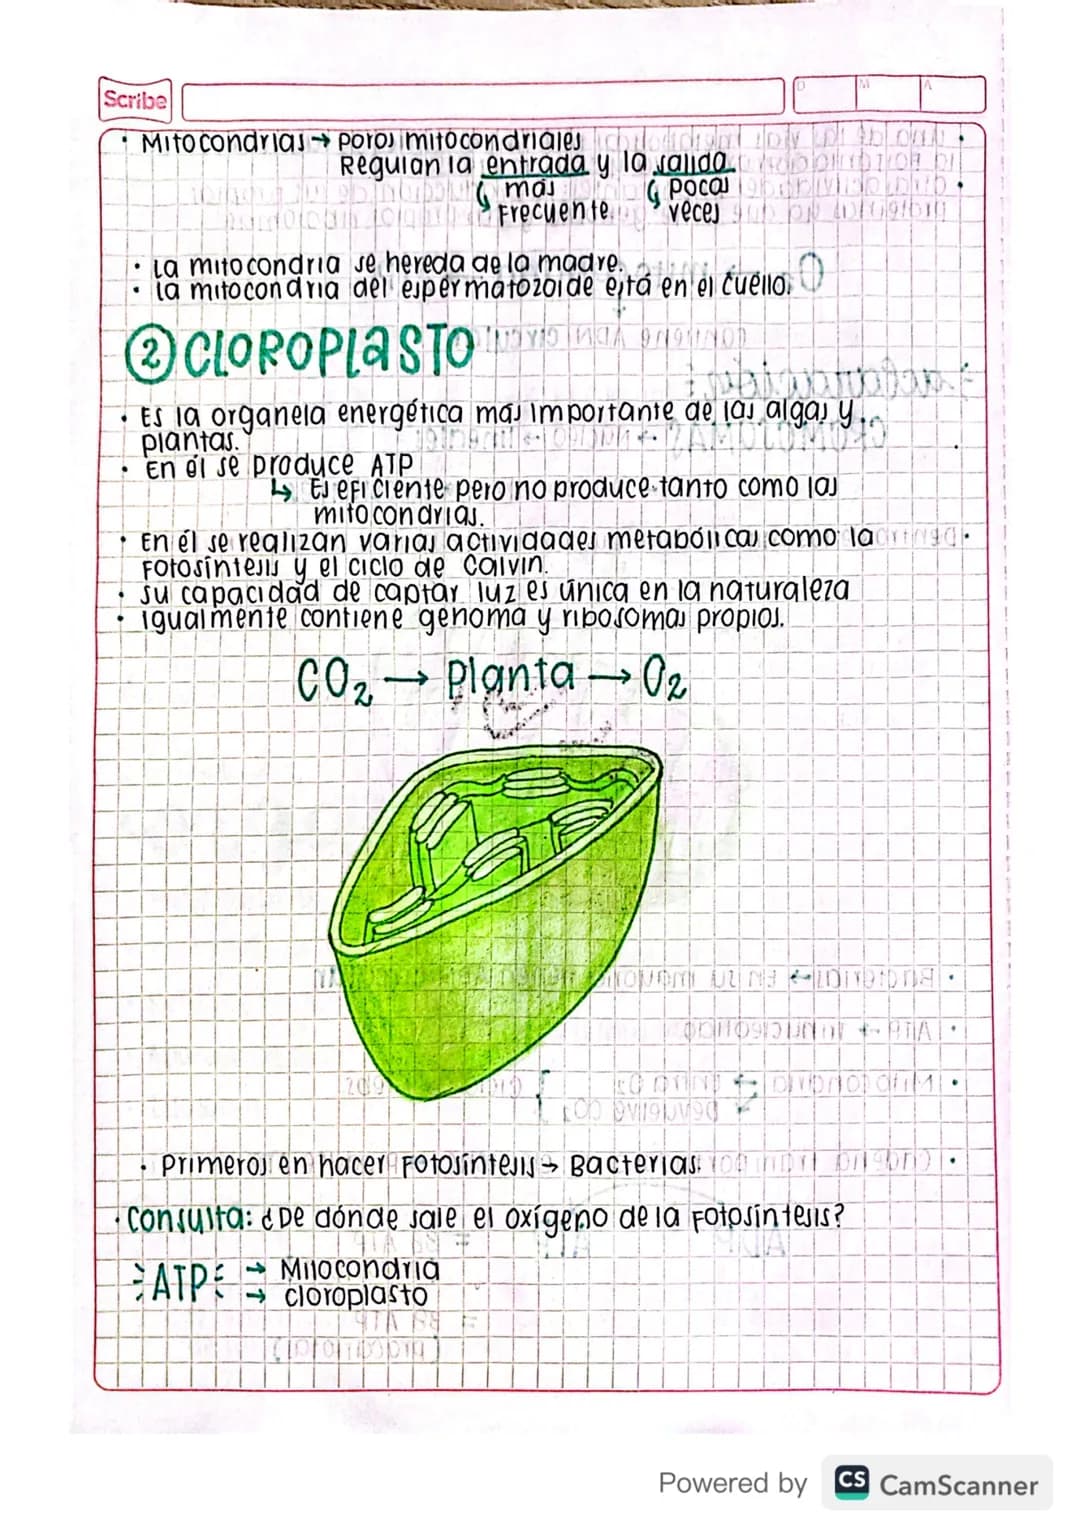 Scribe
D M A
• Mitocondrias → Poros mitocondriales
Regulan la entrada y la salida
más pocas
Frecuente veces
• La mitocondria se hereda de la madre.
• la mitocondria del espermatozoide está en el cuello.
② CLOROPLASTO
• Es la organela energética más importante de las algas y
plantas.
• En él se produce ATP
↳ Es eficiente pero no produce tanto como las
mitocondrias.
• En él se realizan varias actividades metabólicas como la
Fotosíntesis y el ciclo de Calvin.
• Su capacidad de captar luz es única en la naturaleza
• Igualmente contiene genoma y ribosomas propios.
CO₂ → Planta → O₂
• Primeros en hacer Fotosíntesis → Bacterias.
• Consulta: ¿De dónde sale el oxígeno de la Fotosíntesis?
ATP → Mitocondria
→ cloroplasto
Powered by CS CamScanner